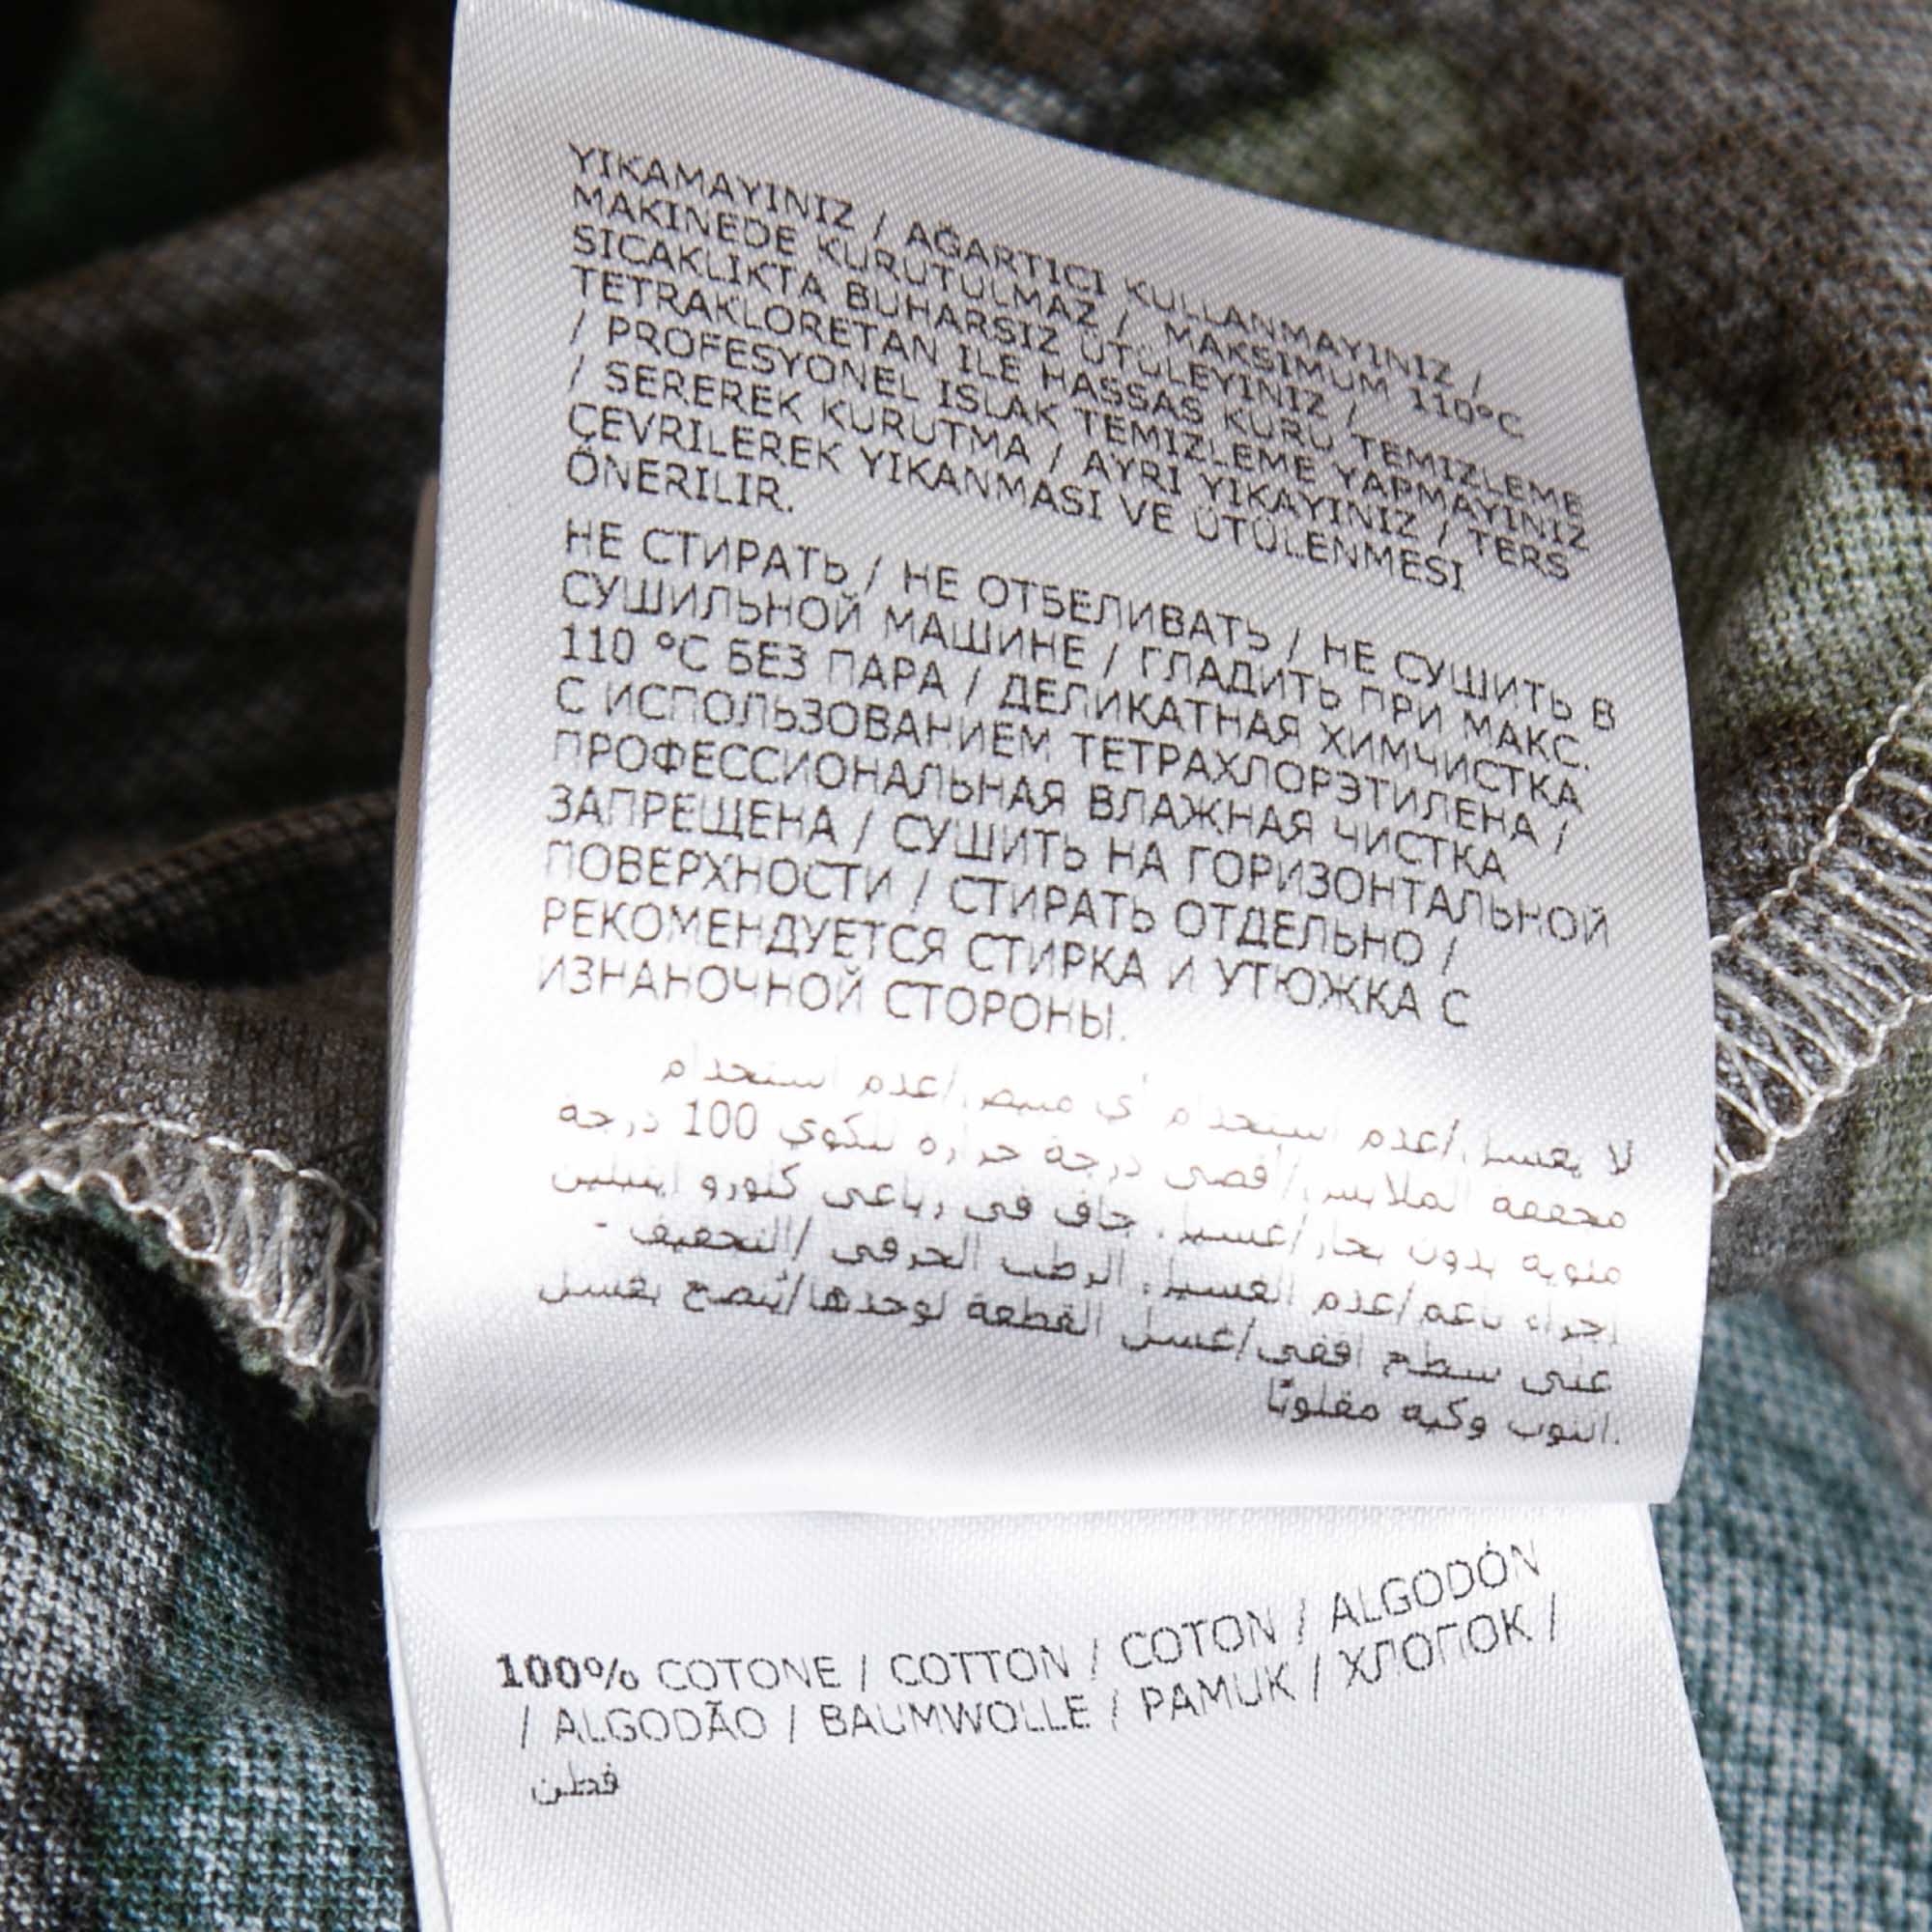 YIKAMAYINIZ / AĞARTICI KULLANMAYINIZ /
MAKINEDE KURUTULMAZ / MAKSIMUM 110°C
SICAKLIKTA BUHARSIZ ÜTÜLEYINIZ /
TETRAKLORETAN ILE HASSAS KURU TEMIZLEME
/ PROFESYONEL ISLAK TEMIZLEME YAPMAYINIZ
/ SEREREK KURUTMA / AYRI YIKAYINIZ / TERS
ÇEVRILEREK YIKANMASI VE ÜTÜLENMESI
ÖNERILIR.
НЕ СТИРАТЬ / НЕ ОТБЕЛИВАТЬ / НЕ СУШИТЬ В
СУШИЛЬНОЙ МАШИНЕ / ГЛАДИТЬ ПРИ МАКС.
110 °C БЕЗ ПАРА / ДЕЛИКАТНАЯ ХИМЧИСТКА
С ИСПОЛЬЗОВАНИЕМ ТЕТРАХЛОРЭТИЛЕНА /
ПРОФЕССИОНАЛЬНАЯ ВЛАЖНАЯ ЧИСТКА
ЗАПРЕЩЕНА / СУШИТЬ НА ГОРИЗОНТАЛЬНОЙ
ПОВЕРХНОСТИ / СТИРАТЬ ОТДЕЛЬНО /
РЕКОМЕНДУЕТСЯ СТИРКА И УТЮЖКА С
ИЗНАНОЧНОЙ СТОРОНЫ.
لا يغسل/عدم استخدام أي مبيض/عدم استخدام
مجففة الملابس/أقصى درجة حرارة للكوي 100 درجة
مئوية بدون بخار/غسيل جاف في رباعي كلورو إيثيلين
إجراء ناعم/عدم الغسيل الرطب الحرفي /التجفيف -
على سطح أفقي/غسل القطعة لوحدها/يُنصح بغسل
الثوب وكيه مقلوبًا.
100% COTONE / COTTON / COTON / ALGODÓN
/ ALGODÃO / BAUMWOLLE / PAMUK / ХЛОПОК /
قطن